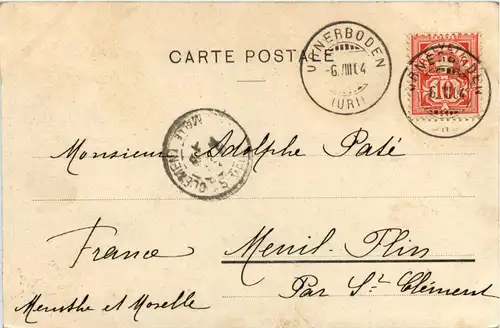 CARTE POSTALE
URNERBODEN
-6.VIII.04
(URI)
URNERBODEN
10
Monsieur Adolphe Paté
France
Menil-Flin
Par St Clément
Meurthe et Moselle